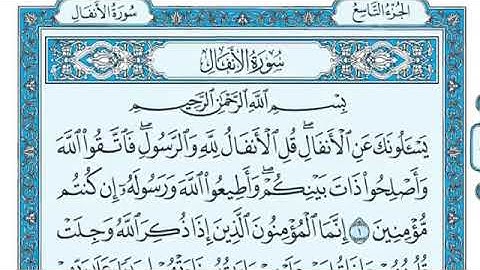 الجُزءُ التَّاسِعُ
سُورَةُ الأَنفَالِ
سُورَةُ الأَنفَالِ
بِسْمِ اللَّهِ الرَّحْمَٰنِ الرَّحِيمِ
يَسْـَٔلُونَكَ عَنِ ٱلْأَنفَالِۖ قُلِ ٱلْأَنفَالُ لِلَّهِ وَٱلرَّسُولِۖ فَٱتَّقُوا۟ ٱللَّهَ
وَأَصْلِحُوا۟ ذَاتَ بَيْنِكُمْۖ وَأَطِيعُوا۟ ٱللَّهَ وَرَسُولَهُۥٓ إِن كُنتُم
مُّؤْمِنِينَ ١ إِنَّمَا ٱلْمُؤْمِنُونَ ٱلَّذِينَ إِذَا ذُكِرَ ٱللَّهُ وَجِلَتْ